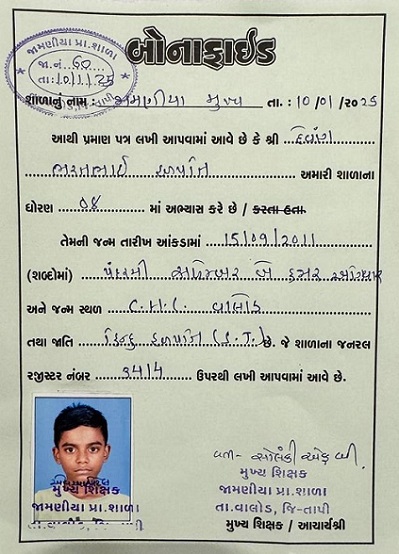 જામણીયા પ્રા.શાળા
જા.નં. 60
તા: 10/1/25
બોનાફાઇડ
શાળાનું નામ : જામણીયા મુખ્ય તા. : 10/01/2025
આથી પ્રમાણ પત્ર લખી આપવામાં આવે છે કે શ્રી
અમારી શાળાના
ધોરણ 08 માં અભ્યાસ કરે છે / કરતા હતા.
તેમની જન્મ તારીખ આંકડામાં 15/09/2011
(શબ્દોમાં) પંદરમી
અને જન્મ સ્થળ C.H.C. વાલોડ
તથા જાતિ હિન્દુ (S.T.) છે. જે શાળાના જનરલ
રજીસ્ટર નંબર 3414 ઉપરથી લખી આપવામાં આવે છે.
મુખ્ય શિક્ષક
જામણીયા પ્રા.શાળા
તા.વાલોડ, જિ-તાપી
મુખ્ય શિક્ષક
જામણીયા પ્રા.શાળા
તા.વાલોડ, જિ-તાપી
મુખ્ય શિક્ષક / આચાર્યશ્રી